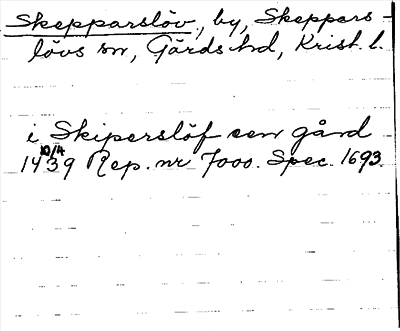 Skepparslöv, by, Skeppars-
lövs sn, Gärds hd, Krist. l.
i Skiperslöf een gård
1439 10/4 Rep. nr 7000. Spec. 1693.